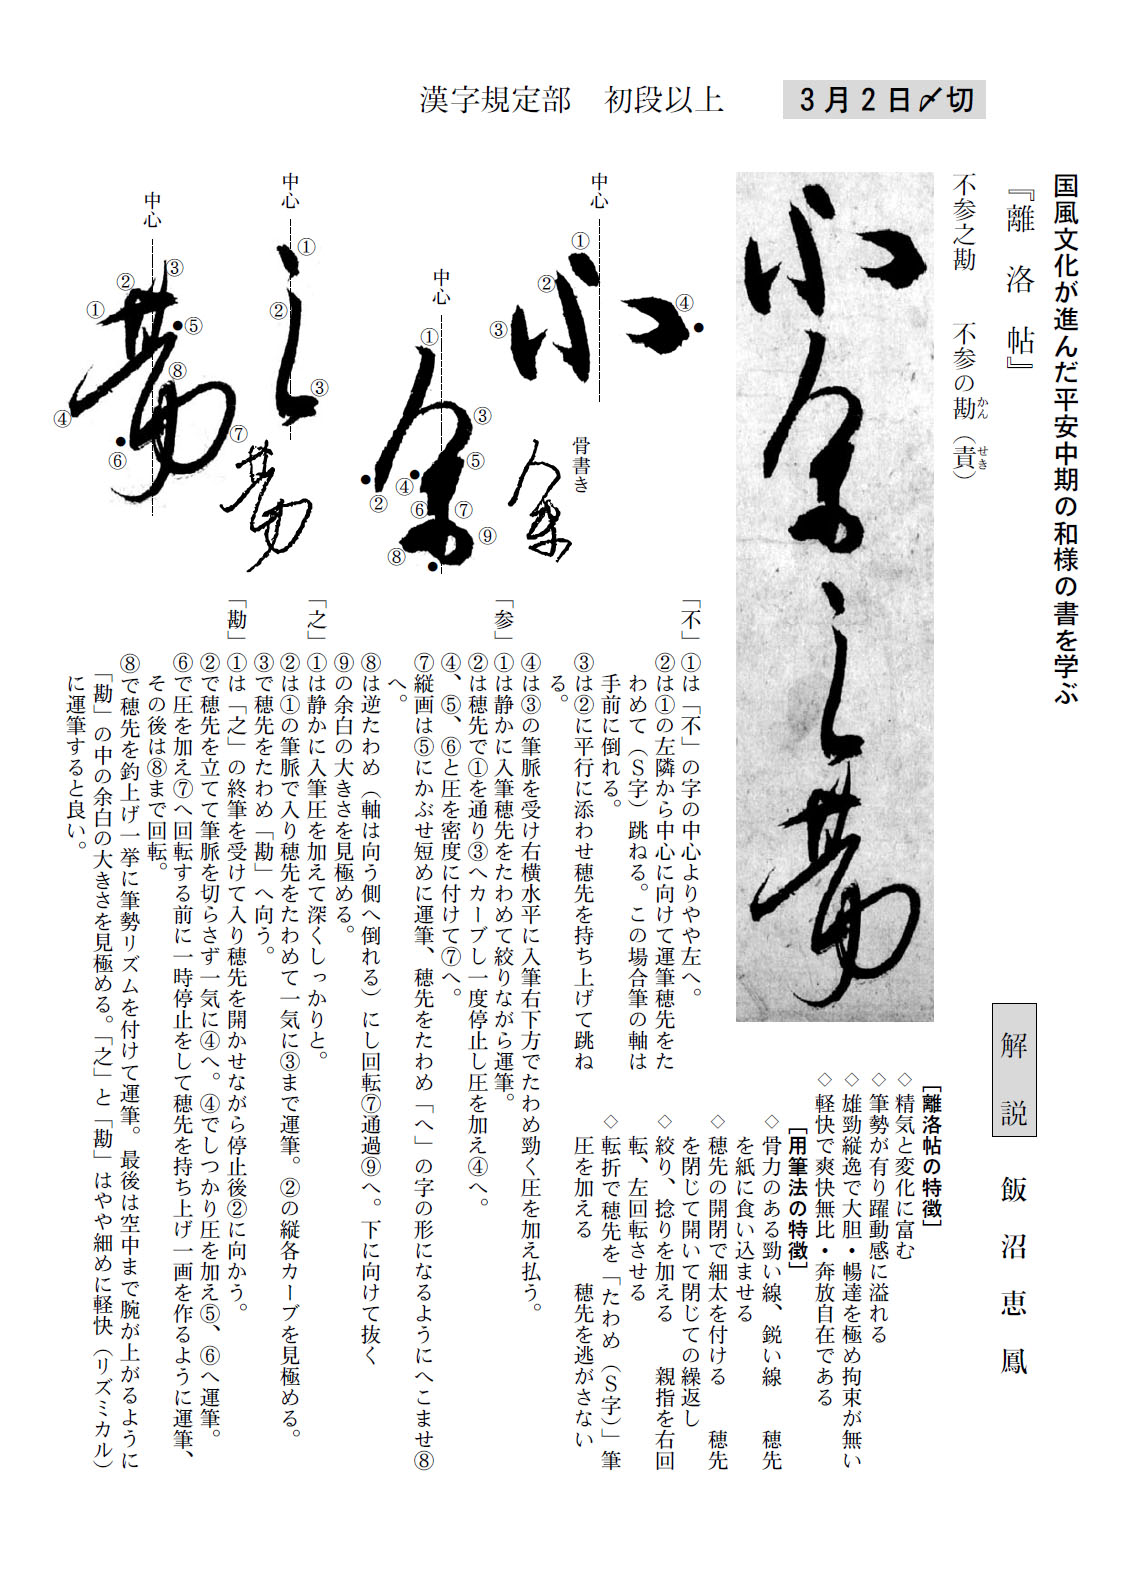 漢字規定部　初段以上　3月2日〆切
国風文化が進んだ平安中期の和様の書を学ぶ
『離洛帖』
不参之勘　不参の勘（責）
かん
せき
解説　飯沼恵鳳
［離洛帖の特徴］
◇精気と変化に富む
◇筆勢が有り躍動感に溢れる
◇雄勁縦逸で大胆・暢達を極め拘束が無い
◇軽快で爽快無比・奔放自在である
［用筆法の特徴］
◇骨力のある勁い線、鋭い線　穂先
を紙に食い込ませる
◇穂先の開閉で細太を付ける　穂先
を閉じて開いて閉じての繰返し
◇絞り、捻りを加える　親指を右回
転、左回転させる
◇転折で穂先を「たわめ（Ｓ字）」筆
圧を加える　穂先を逃がさない
中心
①
②
③
④
骨書き
中心
①
②
③
④
⑤
⑥
⑦
⑧
⑨
中心
①
②
③
中心
①
②
③
④
⑤
⑥
⑦
⑧
「不」①は「不」の字の中心よりやや左へ。
②は①の左隣から中心に向けて運筆穂先をた
わめて（Ｓ字）跳ねる。この場合筆の軸は
手前に倒れる。
③は②に平行に添わせ穂先を持ち上げて跳ね
る。
④は③の筆脈を受け右横水平に入筆右下方でたわめ勁く圧を加え払う。
「参」①は静かに入筆穂先をたわめて絞りながら運筆。
②は穂先で①を通り③へカーブし一度停止し圧を加え④へ。
④、⑤、⑥と圧を密度に付けて⑦へ。
⑦縦画は⑤にかぶせ短めに運筆、穂先をたわめ「へ」の字の形になるようにへこませ⑧
へ。
⑧は逆たわめ（軸は向う側へ倒れる）にし回転⑦通過⑨へ。下に向けて抜く
⑨の余白の大きさを見極める。
「之」①は静かに入筆圧を加えて深くしっかりと。
②は①の筆脈で入り穂先をたわめて一気に③まで運筆。②の縦各カーブを見極める。
③で穂先をたわめ「勘」へ向う。
「勘」①は「之」の終筆を受けて入り穂先を開かせながら停止後②に向かう。
②で穂先を立てて筆脈を切らさず一気に④へ。④でしつかり圧を加え⑤、⑥へ運筆。
⑥で圧を加え⑦へ回転する前に一時停止をして穂先を持ち上げ一画を作るように運筆、
その後は⑧まで回転。
⑧で穂先を釣上げ一挙に筆勢リズムを付けて運筆。最後は空中まで腕が上がるように
「勘」の中の余白の大きさを見極める。「之」と「勘」はやや細めに軽快（リズミカル）
に運筆すると良い。